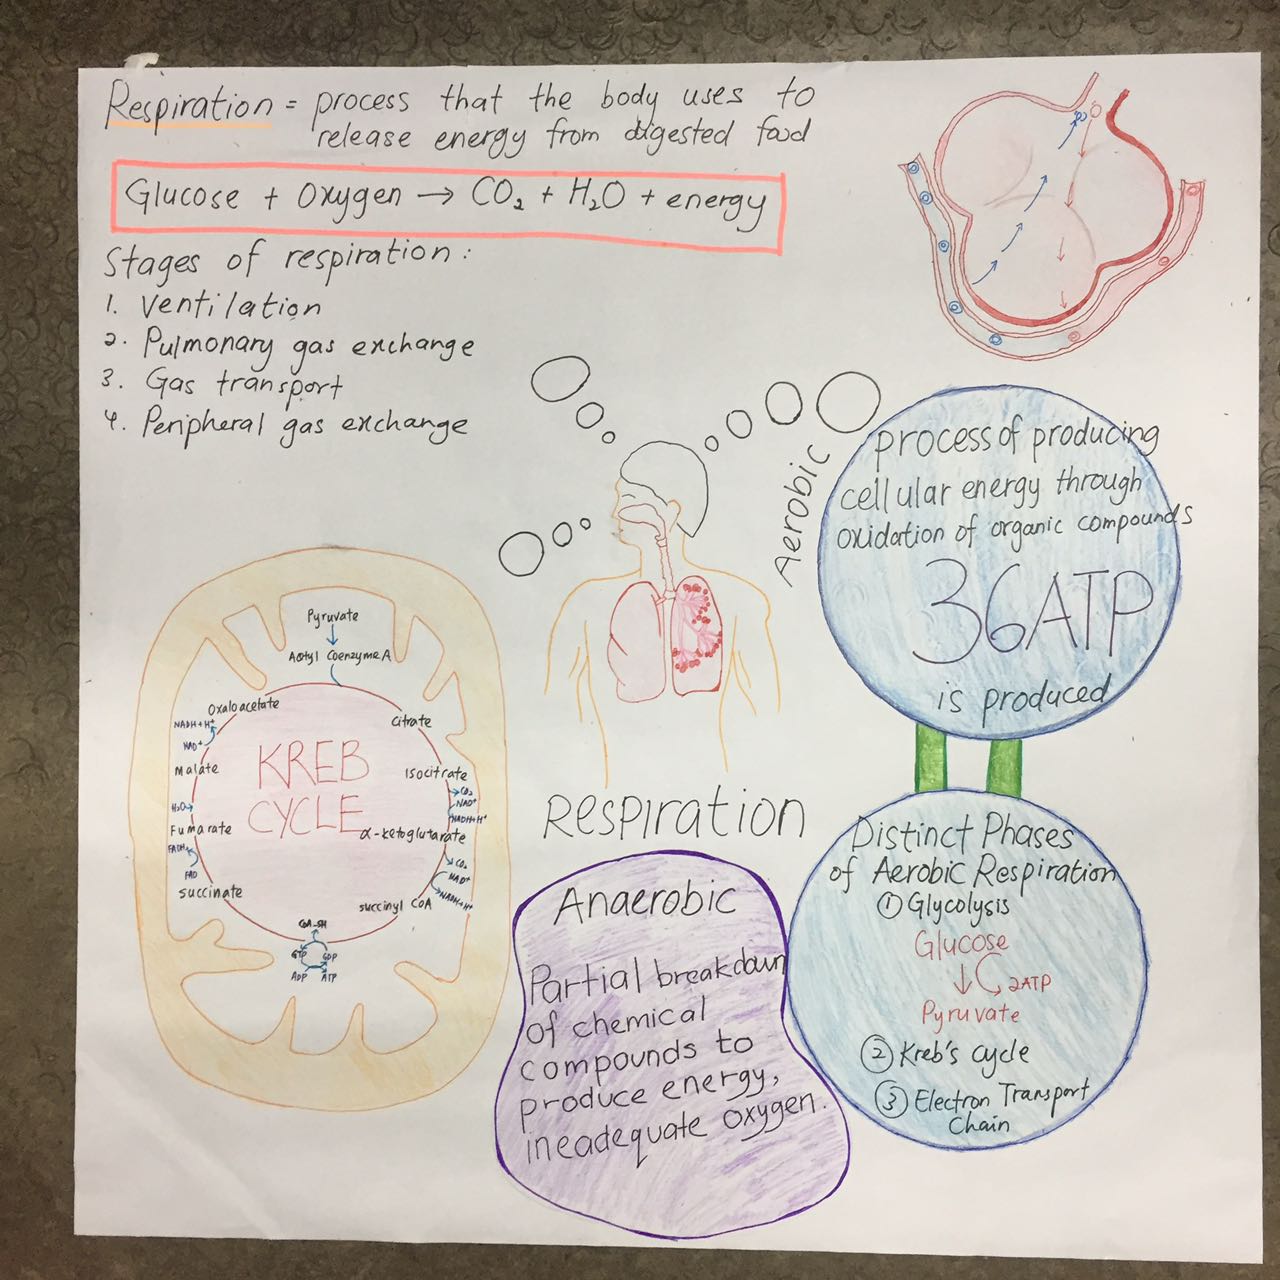 Respiration = process that the body uses to
release energy from digested food
Glucose + Oxygen → CO₂ + H₂O + energy
Stages of respiration:
1. Ventilation
2. Pulmonary gas exchange
3. Gas transport
4. Peripheral gas exchange
Aerobic
process of producing
cellular energy through
oxidation of organic compounds
36ATP
is produced
Pyruvate
Acetyl Coenzyme A
Oxaloacetate
Citrate
NADH+H⁺
NAD⁺
Malate
Isocitrate
KREB
CYCLE
CO₂
NAD⁺
NADH+H⁺
H₂O
Fumarate
α-ketoglutarate
FADH₂
FAD
CO₂
NAD⁺
NADH+H⁺
succinate
succinyl CoA
CoA-SH
GTP GDP
ADP ATP
RESPIRATION
Anaerobic
Partial breakdown
of chemical
compounds to
produce energy,
ineadequate oxygen.
Distinct Phases
of Aerobic Respiration
① Glycolysis
Glucose
↓ 2ATP
Pyruvate
② Kreb's cycle
③ Electron Transport
Chain